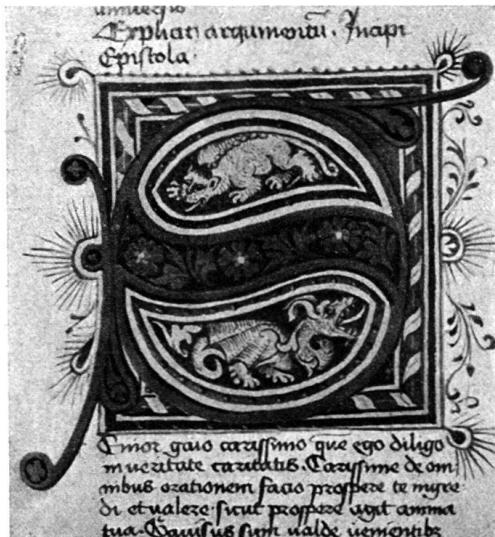 Explicit argumentū. Incipi
Epistola.
S
Emor gaio carissimo que ego diligo
in veritate caritatis. Carissime de om
nibus orationem facio prospere te ingre
di et valere sicut prospere agit amma
tua. Gavisus sum valde uementibȝ